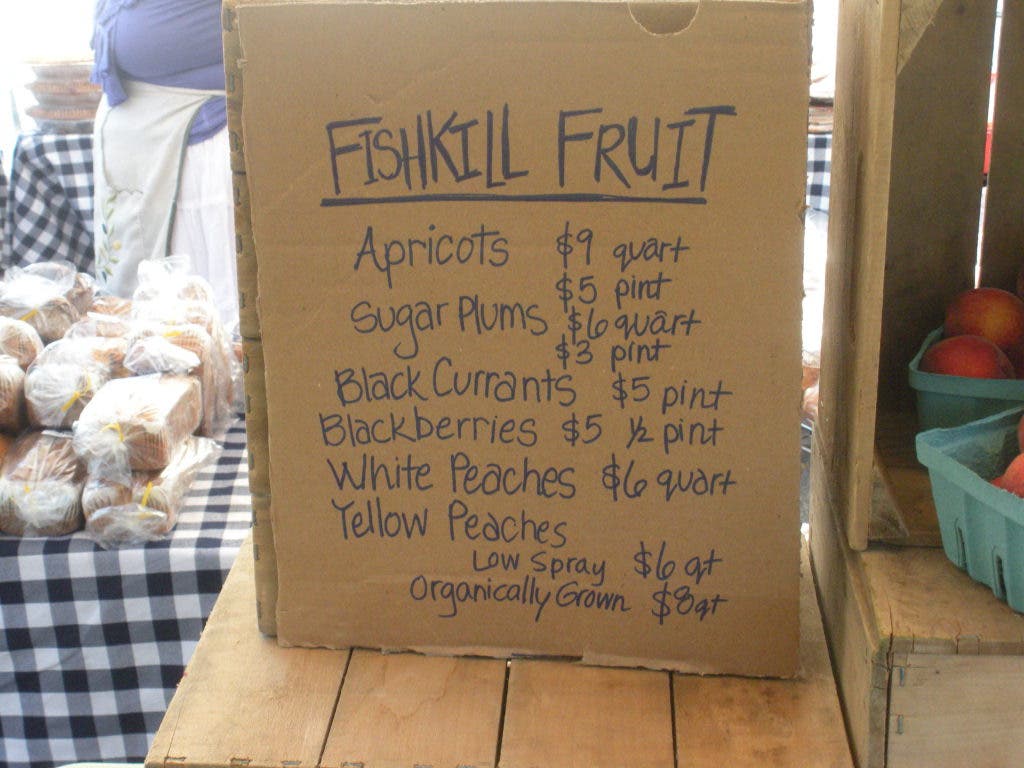 FISHKILL FRUIT
Apricots $9 quart
$5 pint
Sugar Plums $6 quart
$3 pint
Black Currants $5 pint
Blackberries $5 ½ pint
White Peaches $6 quart
Yellow Peaches
Low Spray $6 qt
Organically Grown $8 qt